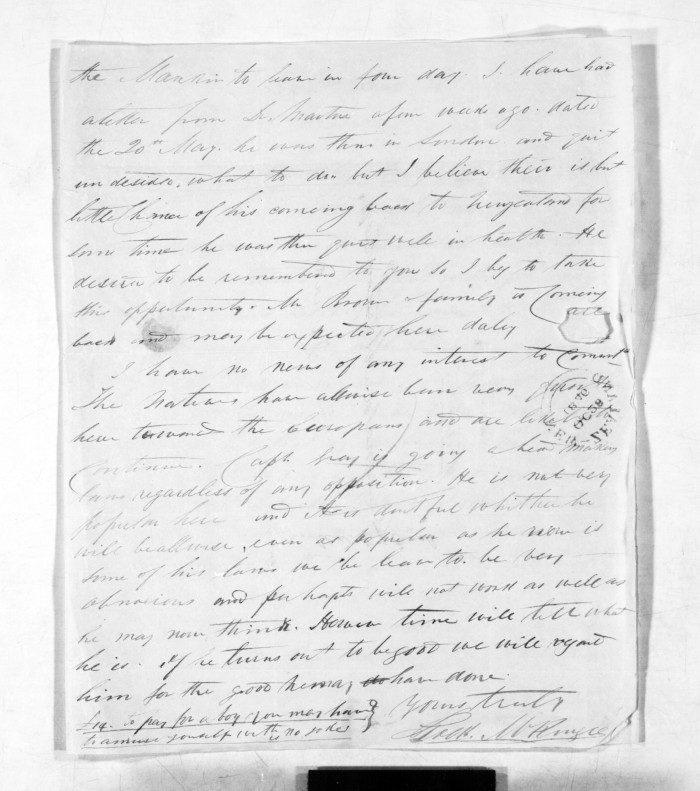 the Mankin to leave in four day. I have had
a letter from Dr Martin a few weeks ago. dated
the 20th May. he was then in London and quit
undesided, what to do but I believe their is but
little Chance of his comeing back to Newzealand for
some time he was then quit well in health. He
desired to be remembered to you so I beg to take
this opportunity. Mr Brown & family is Comeing
back and may be expected here daley
I have no news of any interest to
The Natives have allwise been very
here towards the Europeans and are likely to
Continue. Capt. Gray is going a head making
laws regardless of any opposition. He is not very
popular here and it is doutful whither he
will be allwise, even as popular as he now is
some of his laws we be leave to be very
obnoxious and perhapts will not work as well as
he may now think. However time will tell what
he is. if he turns out to be good we will regard
him for the good he may have done.
Yours truly
to pay for a boy you may have
to amuse yourself with is no joke